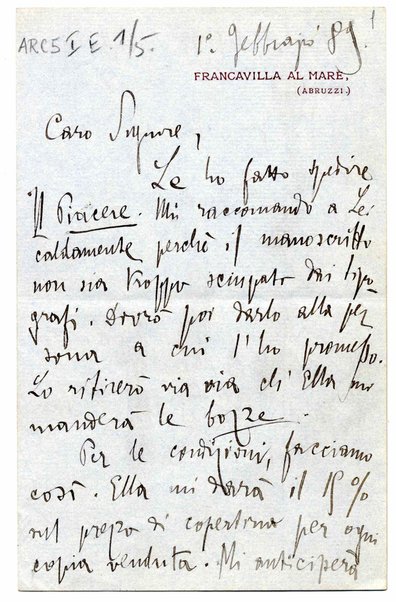 1
ARC5 I E. 1/5. 1º. febbrajo 89.
FRANCAVILLA AL MARE,
(ABRUZZI.)
Caro Signore,
Le ho fatto spedire
Il Piacere. Mi raccomando a Lei
caldamente perchè il manoscritto
non sia troppo sciupato dai tipo-
grafi. Dovrò poi darlo alla per
sona a cui l'ho promesso.
Lo ritirerò via via ch'Ella mi
manderà le bozze.
Per le condizioni, facciamo
così. Ella mi darà il 15%
sul prezzo di copertina per ogni
copia venduta. Mi anticiperà